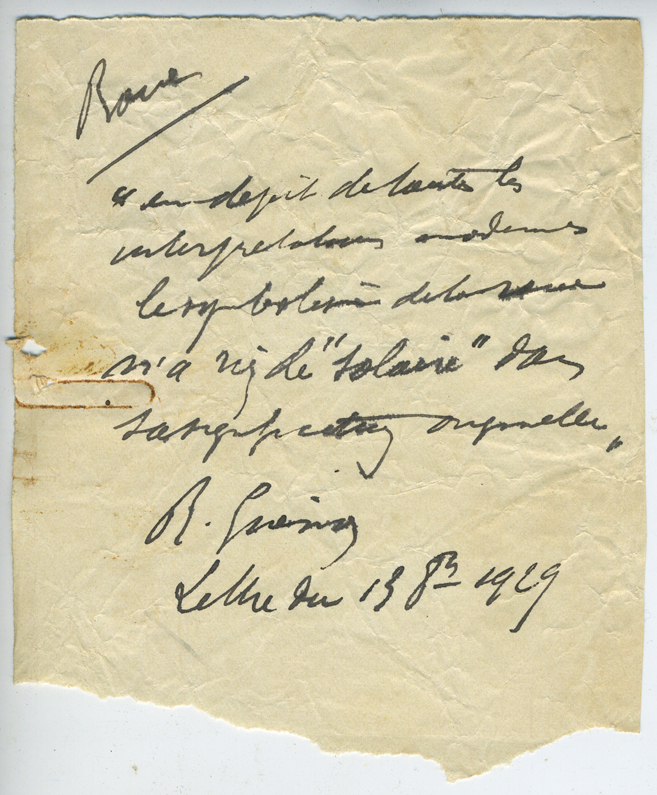 Roue
"en depit de toutes les
interpretations modernes
le symbolisme de la roue
n'a rien de "solaire" dans
sa signification originelle"
R. Guénon
Lettre du 13 8bre 1929